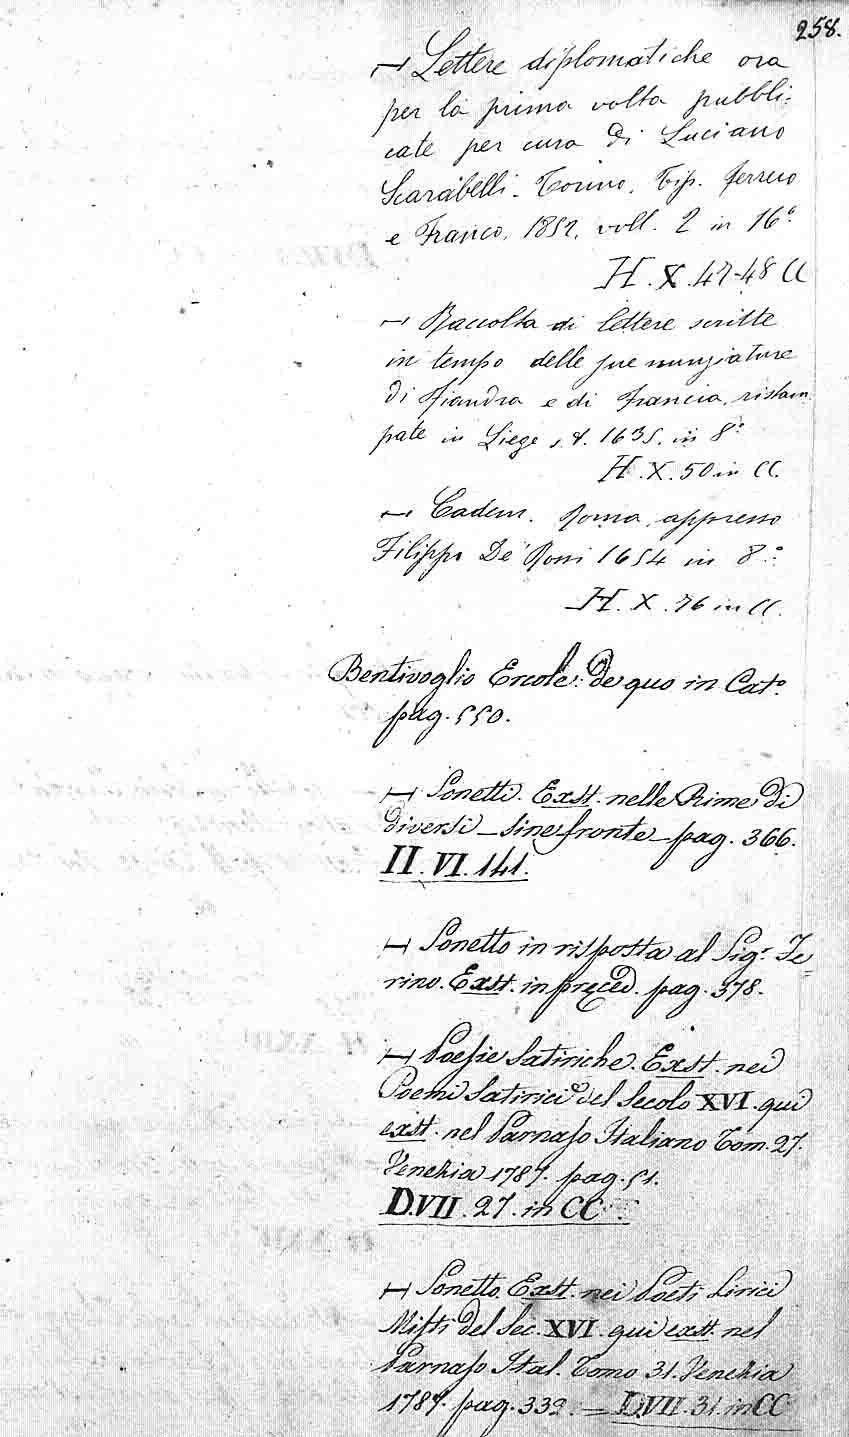 258.
— Lettere diplomatiche ora
per la prima volta pubbli:
cate per cura di Luciano
Scarabelli. Torino, Tip. Ferrero
e Franco, 1852, voll. 2 in 16°.
H. X. 47-48 CC
— Raccolta di lettere scritte
in tempo delle sue nunziature
di Fiandra e di Francia, ristam
pate in Liege s. t. 1635. in 8°.
H. X. 50 in CC.
— Eadem. Roma, appresso
Filippo De' Rossi 1654 in 8°.
H. X. 76 in CC.
Bentivoglio Ercole: de quo in Cat°.
pag. 550.
— Sonetti. Exst. nelle Rime di
diversi – sine fronte – pag. 366.
II. VI. 141.
— Sonetto in risposta al Sig.r Te=
rino. Exst. in preced. pag. 378.
— Poesie Satiriche. Exst. nei
Poemi Satirici del Secolo XVI. qui
exst. nel Parnaso Italiano Tom. 27.
Venezia 1787. pag. 51.
D.VII. 27. in CC
— Sonetto. Exst. nei Poeti Lirici
Misti del Sec. XVI. qui exst. nel
Parnaso Ital. Tomo 31. Venezia
1787. pag. 332. = D.VII. 31. in CC